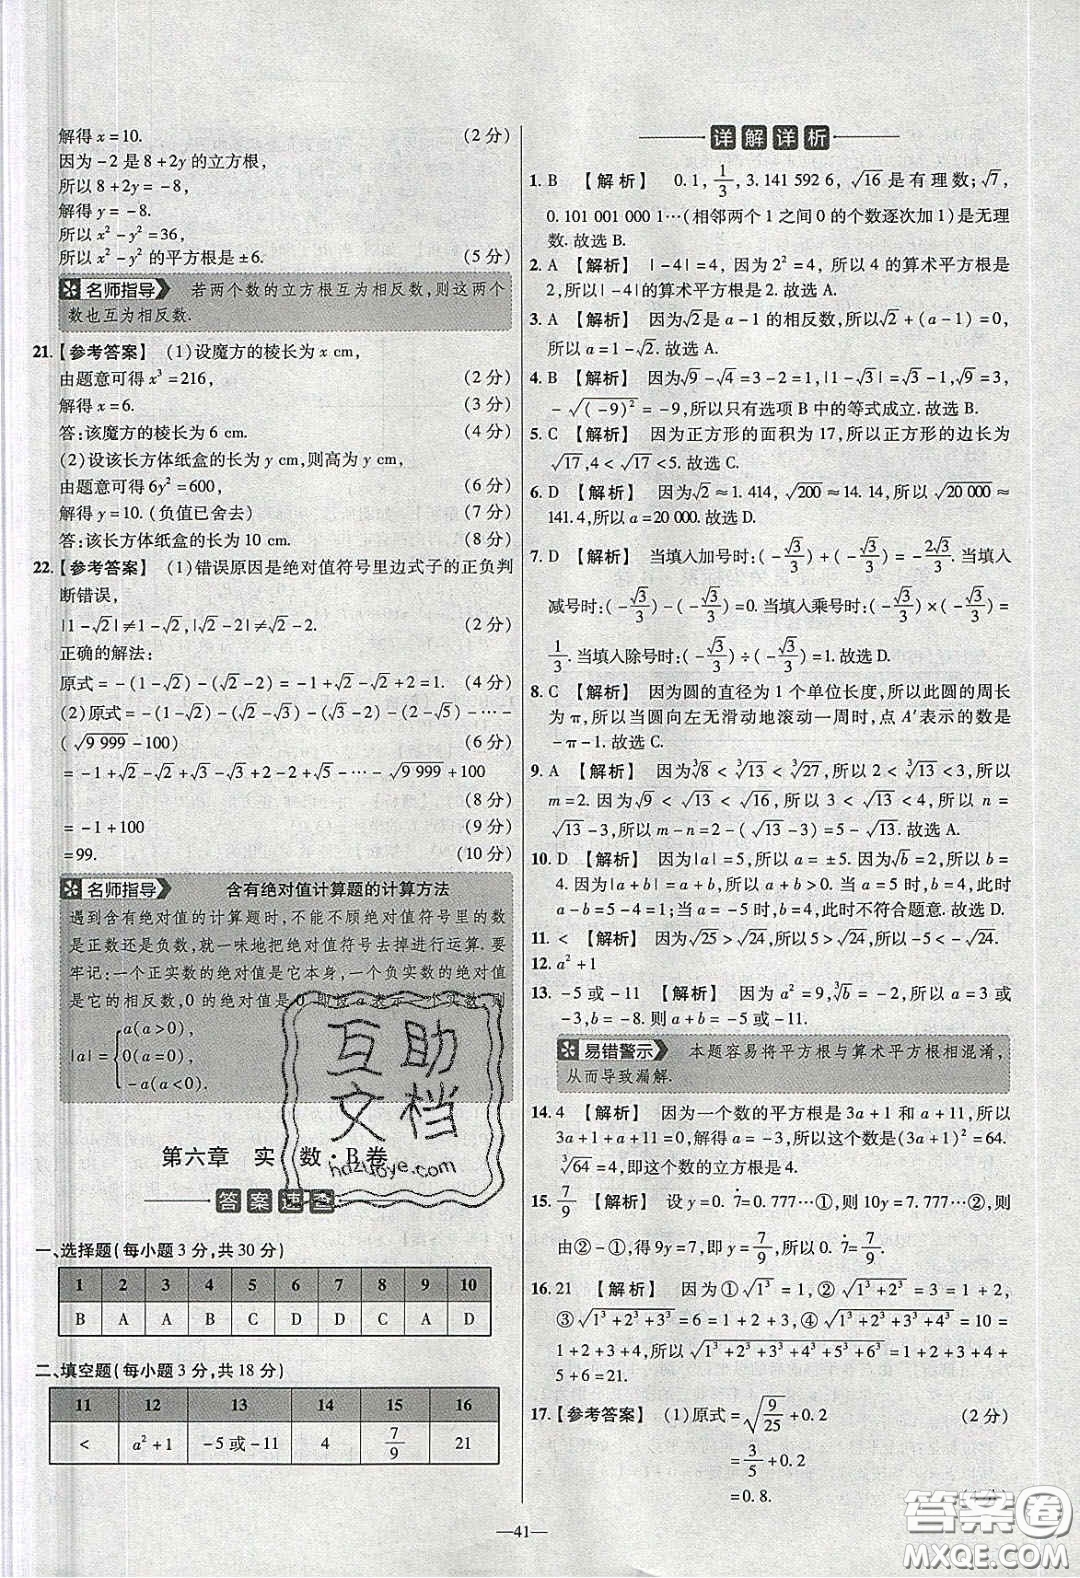 解得 x=10. (2 分)
因为 -2 是 8+2y 的立方根,
所以 8+2y=-8,
解得 y=-8.
所以 x²-y²=36,
所以 x²-y² 的平方根是 ±6. (5 分)
名师指导 若两个数的立方根互为相反数,则这两个
数也互为相反数.
21.【参考答案】 (1)设魔方的棱长为 x cm,
由题意可得 x³=216, (2 分)
解得 x=6. (3 分)
答:该魔方的棱长为 6 cm. (4 分)
(2)设该长方体纸盒的长为 y cm,则高为 y cm,
由题意可得 6y²=600, (6 分)
解得 y=10. (负值已舍去) (7 分)
答:该长方体纸盒的长为 10 cm. (8 分)
22.【参考答案】 (1)错误原因是绝对值符号里边式子的正负判
断错误,
|1-√2|≠1-√2,|√2-2|≠√2-2. (2 分)
正确的解法:
原式=-(1-√2)-(√2-2)=-1+√2-√2+2=1. (4 分)
(2)原式=-(1-√2)-(√2-√3)-(√3-2)-(2-√5)-…-
(√9 999-100) (6 分)
=-1+√2-√2+√3-√3+2-2+√5-…-√9 999+100
(8 分)
=-1+100 (9 分)
=99. (10 分)
名师指导 含有绝对值计算题的计算方法
遇到含有绝对值的计算题时,不能不顾绝对值符号里的数
是正数还是负数,就一味地把绝对值符号去掉进行运算.要
牢记:一个正实数的绝对值是它本身,一个负实数的绝对值
是它的相反数,0 的绝对值是 0.即设 a 表示一个实数,则
a(a>0),
|a|={0(a=0),
-a(a<0).
第六章 实 数·B卷
答案速查
一、选择题(每小题 3 分,共 30 分)
1 2 3 4 5 6 7 8 9 10
B A A B C D D C A D
二、填空题(每小题 3 分,共 18 分)
11 12 13 14 15 16
< a²+1 -5 或 -11 4 7/9 21
详解详析
1. B 【解析】 0.1, 1/3, 3.141 592 6, √16 是有理数;√7,
0.101 001 000 1…(相邻两个 1 之间 0 的个数逐次加 1)是无理
数.故选 B.
2. A 【解析】 |-4|=4, 因为 2²=4, 所以 4 的算术平方根是
2,所以|-4|的算术平方根是 2.故选 A.
3. A 【解析】 因为√2是 a-1 的相反数,所以√2+(a-1)=0,
所以 a=1-√2.故选 A.
4. B 【解析】 因为√9-√4=3-2=1,|1-√3|=√3-1,√9=3,
-√(-9)²=-9,所以只有选项 B 中的等式成立.故选 B.
5. C 【解析】 因为正方形的面积为 17,所以正方形的边长为
√17,4<√17<5.故选 C.
6. D 【解析】 因为√2≈1.414, √200≈14.14, 所以√20 000≈
141.4,所以 a=20 000.故选 D.
7. D 【解析】 当填入加号时:(-√3/3)+(-√3/3)=-2√3/3.当填入
减号时:(-√3/3)-(-√3/3)=0.当填入乘号时:(-√3/3)×(-√3/3)=
1/3.当填入除号时:(-√3/3)÷(-√3/3)=1.故选 D.
8. C 【解析】 因为圆的直径为 1 个单位长度,所以此圆的周长
为 π,所以当圆向左无滑动地滚动一周时,点 A′表示的数是
-π-1.故选 C.
9. A 【解析】 因为∛8<∛13<∛27,所以 2<∛13<3,所以
m=2.因为√9<√13<√16,所以 3<√13<4,所以 n=
√13-3,所以 m-n=2-(√13-3)=5-√13.故选 A.
10. D 【解析】 因为|a|=5,所以 a=±5.因为√b=2,所以 b=
4.因为|a+b|=a+b,所以 a+b>0.当 a=5,b=4 时,此时
a-b=5-4=1;当 a=-5,b=4,此时不符合题意.故选 D.
11. < 【解析】 因为√25>√24,所以 5>√24,所以 -5<-√24.
12. a²+1
13. -5 或 -11 【解析】 因为 a²=9,∛b=-2,所以 a=3 或
-3,b=-8.则 a+b=-5 或 -11.
易错警示 本题容易将平方根与算术平方根相混淆,
从而导致漏解.
14. 4 【解析】 因为一个数的平方根是 3a+1 和 a+11,所以
3a+1+a+11=0,解得 a=-3,所以这个数是(3a+1)²=64.
∛64=4,即这个数的立方根是 4.
15. 7/9 【解析】 设 y=0.7̇=0.777…①,则 10y=7.777…②,则
由②-①,得 9y=7,即 y=7/9,所以 0.7̇=7/9.
16. 21 【解析】 因为①√1³=1, ②√1³+2³=1+2,
③√1³+2³+3³=6=1+2+3, ④√1³+2³+3³+4³=10=
1+2+3+4,所以√1³+2³+3³+4³+5³+6³=1+2+3+4+
5+6=21.
17.【参考答案】 (1)原式=√9/25+0.2 (2 分)
=3/5+0.2
=0.8.
—41—
互助文档
hdzuoye.com
答案圈
MXQE.COM